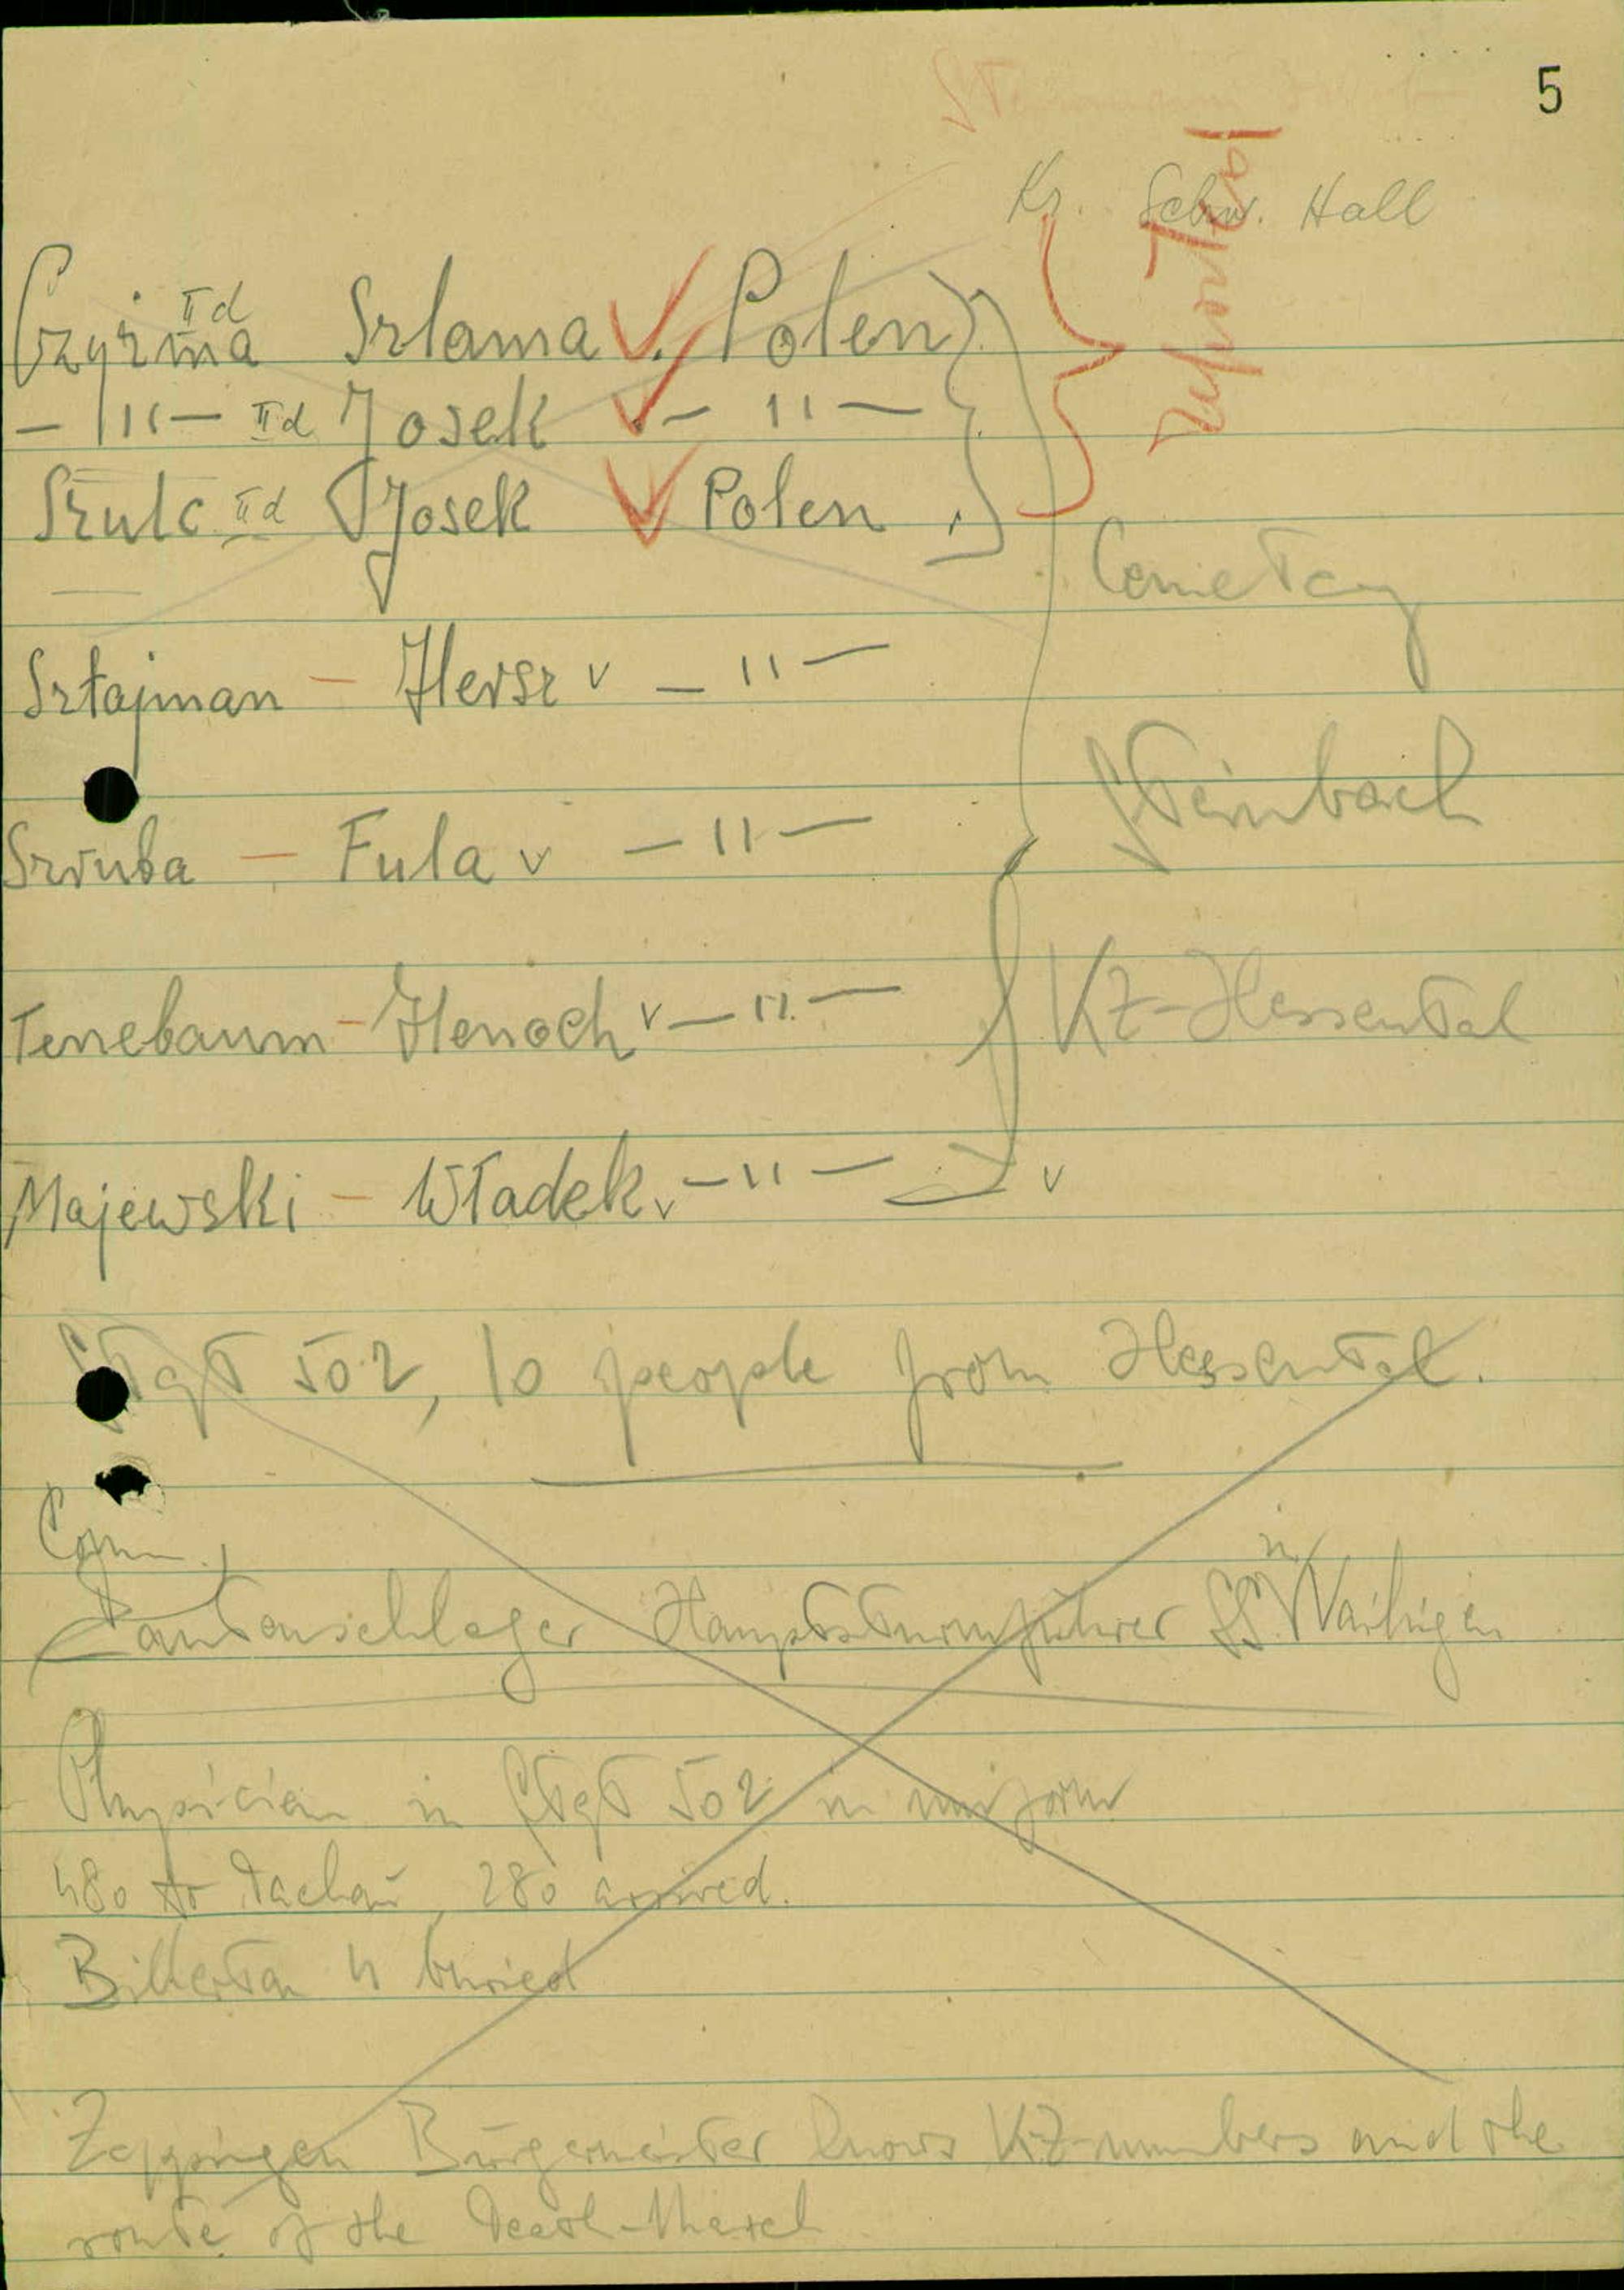 5
Kr. Schw. Hall
IId
Szlama Polen
— 11 — IId Josek — 11 —
Szulc IId Josek Polen
Cemetery
Sztajman — Hersz v — 11 —
Steinbach
Szruba — Fula v — 11 —
Tenebaum — Henoch v — 11 —
KZ-Hessental
Majewski — Władek v — 11 — v
Stgt 502, 10 people from Hessental.
Comm.,
Lautenschlager Hauptsturmführer SS in Vaihingen
Physician in Stgt 502 in uniform
480 to Dachau, 280 arrived.
4 buried
Bürgermeister knows KZ-numbers and the
route of the Death-March